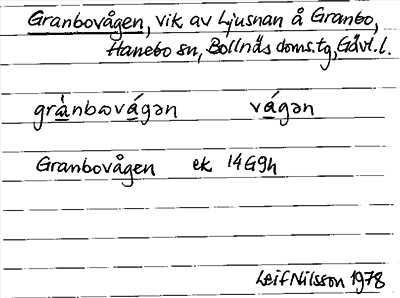 Granbovågen, vik av Ljusnan å Granbo,
Hanebo sn, Bollnäs doms.tg, Gävl.l.
grànbωvágən vágən
Granbovågen ek 14G9h
Leif Nilsson 1978